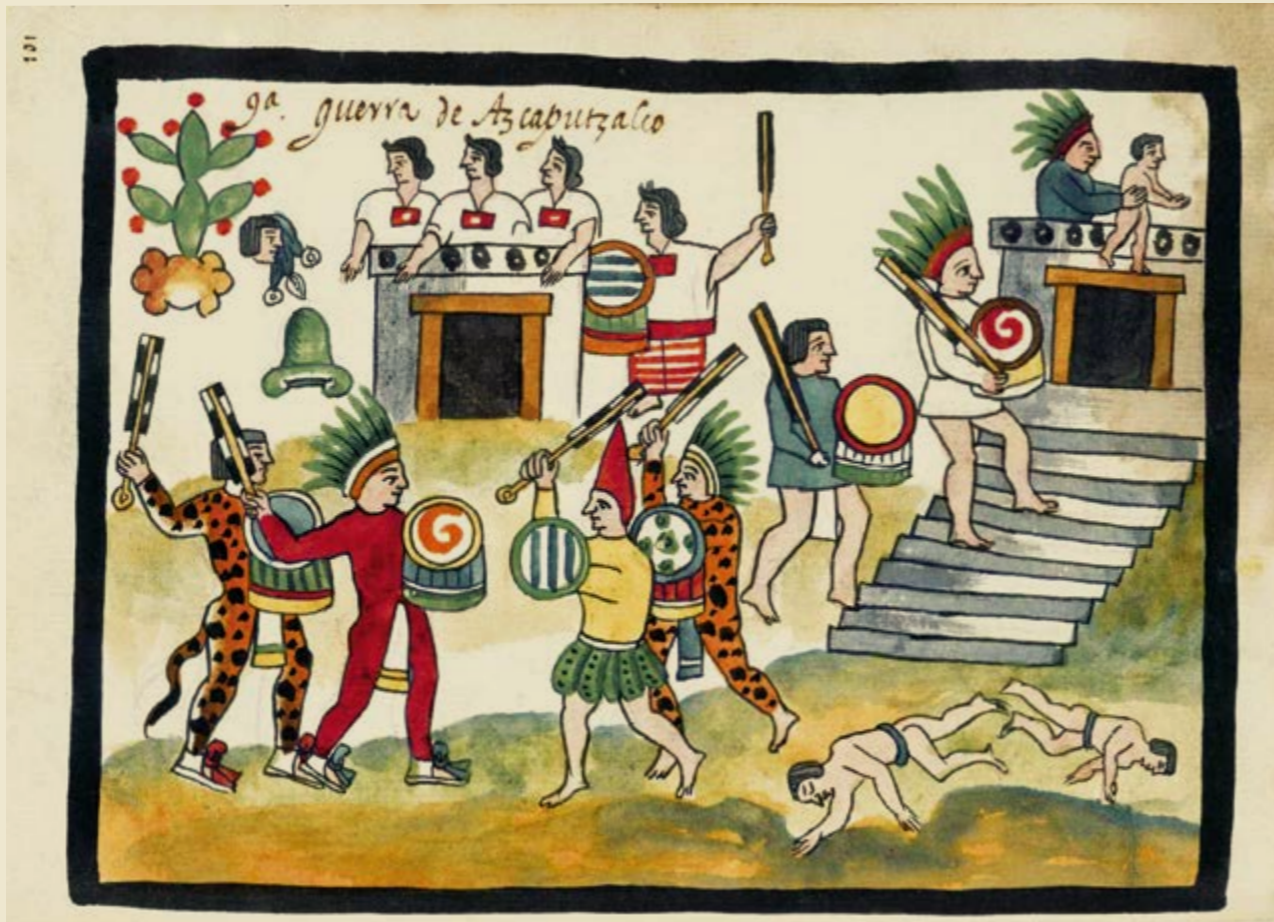 131
9a. guerra de Azcaputzalco